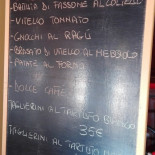 - BATTUTA DI FASSONE AL COLTELLO
- VITELLO TONNATO
- GNOCHI AL RAGÙ
- BRASATO DI VITELLO AL NEBBIOLO
- PATATE AL FORNO
- DOLCE CAFFÈ
TAGLIERINI AL TARTUFO BIANCO
35€
TAGLIERINI AL TARTUFO